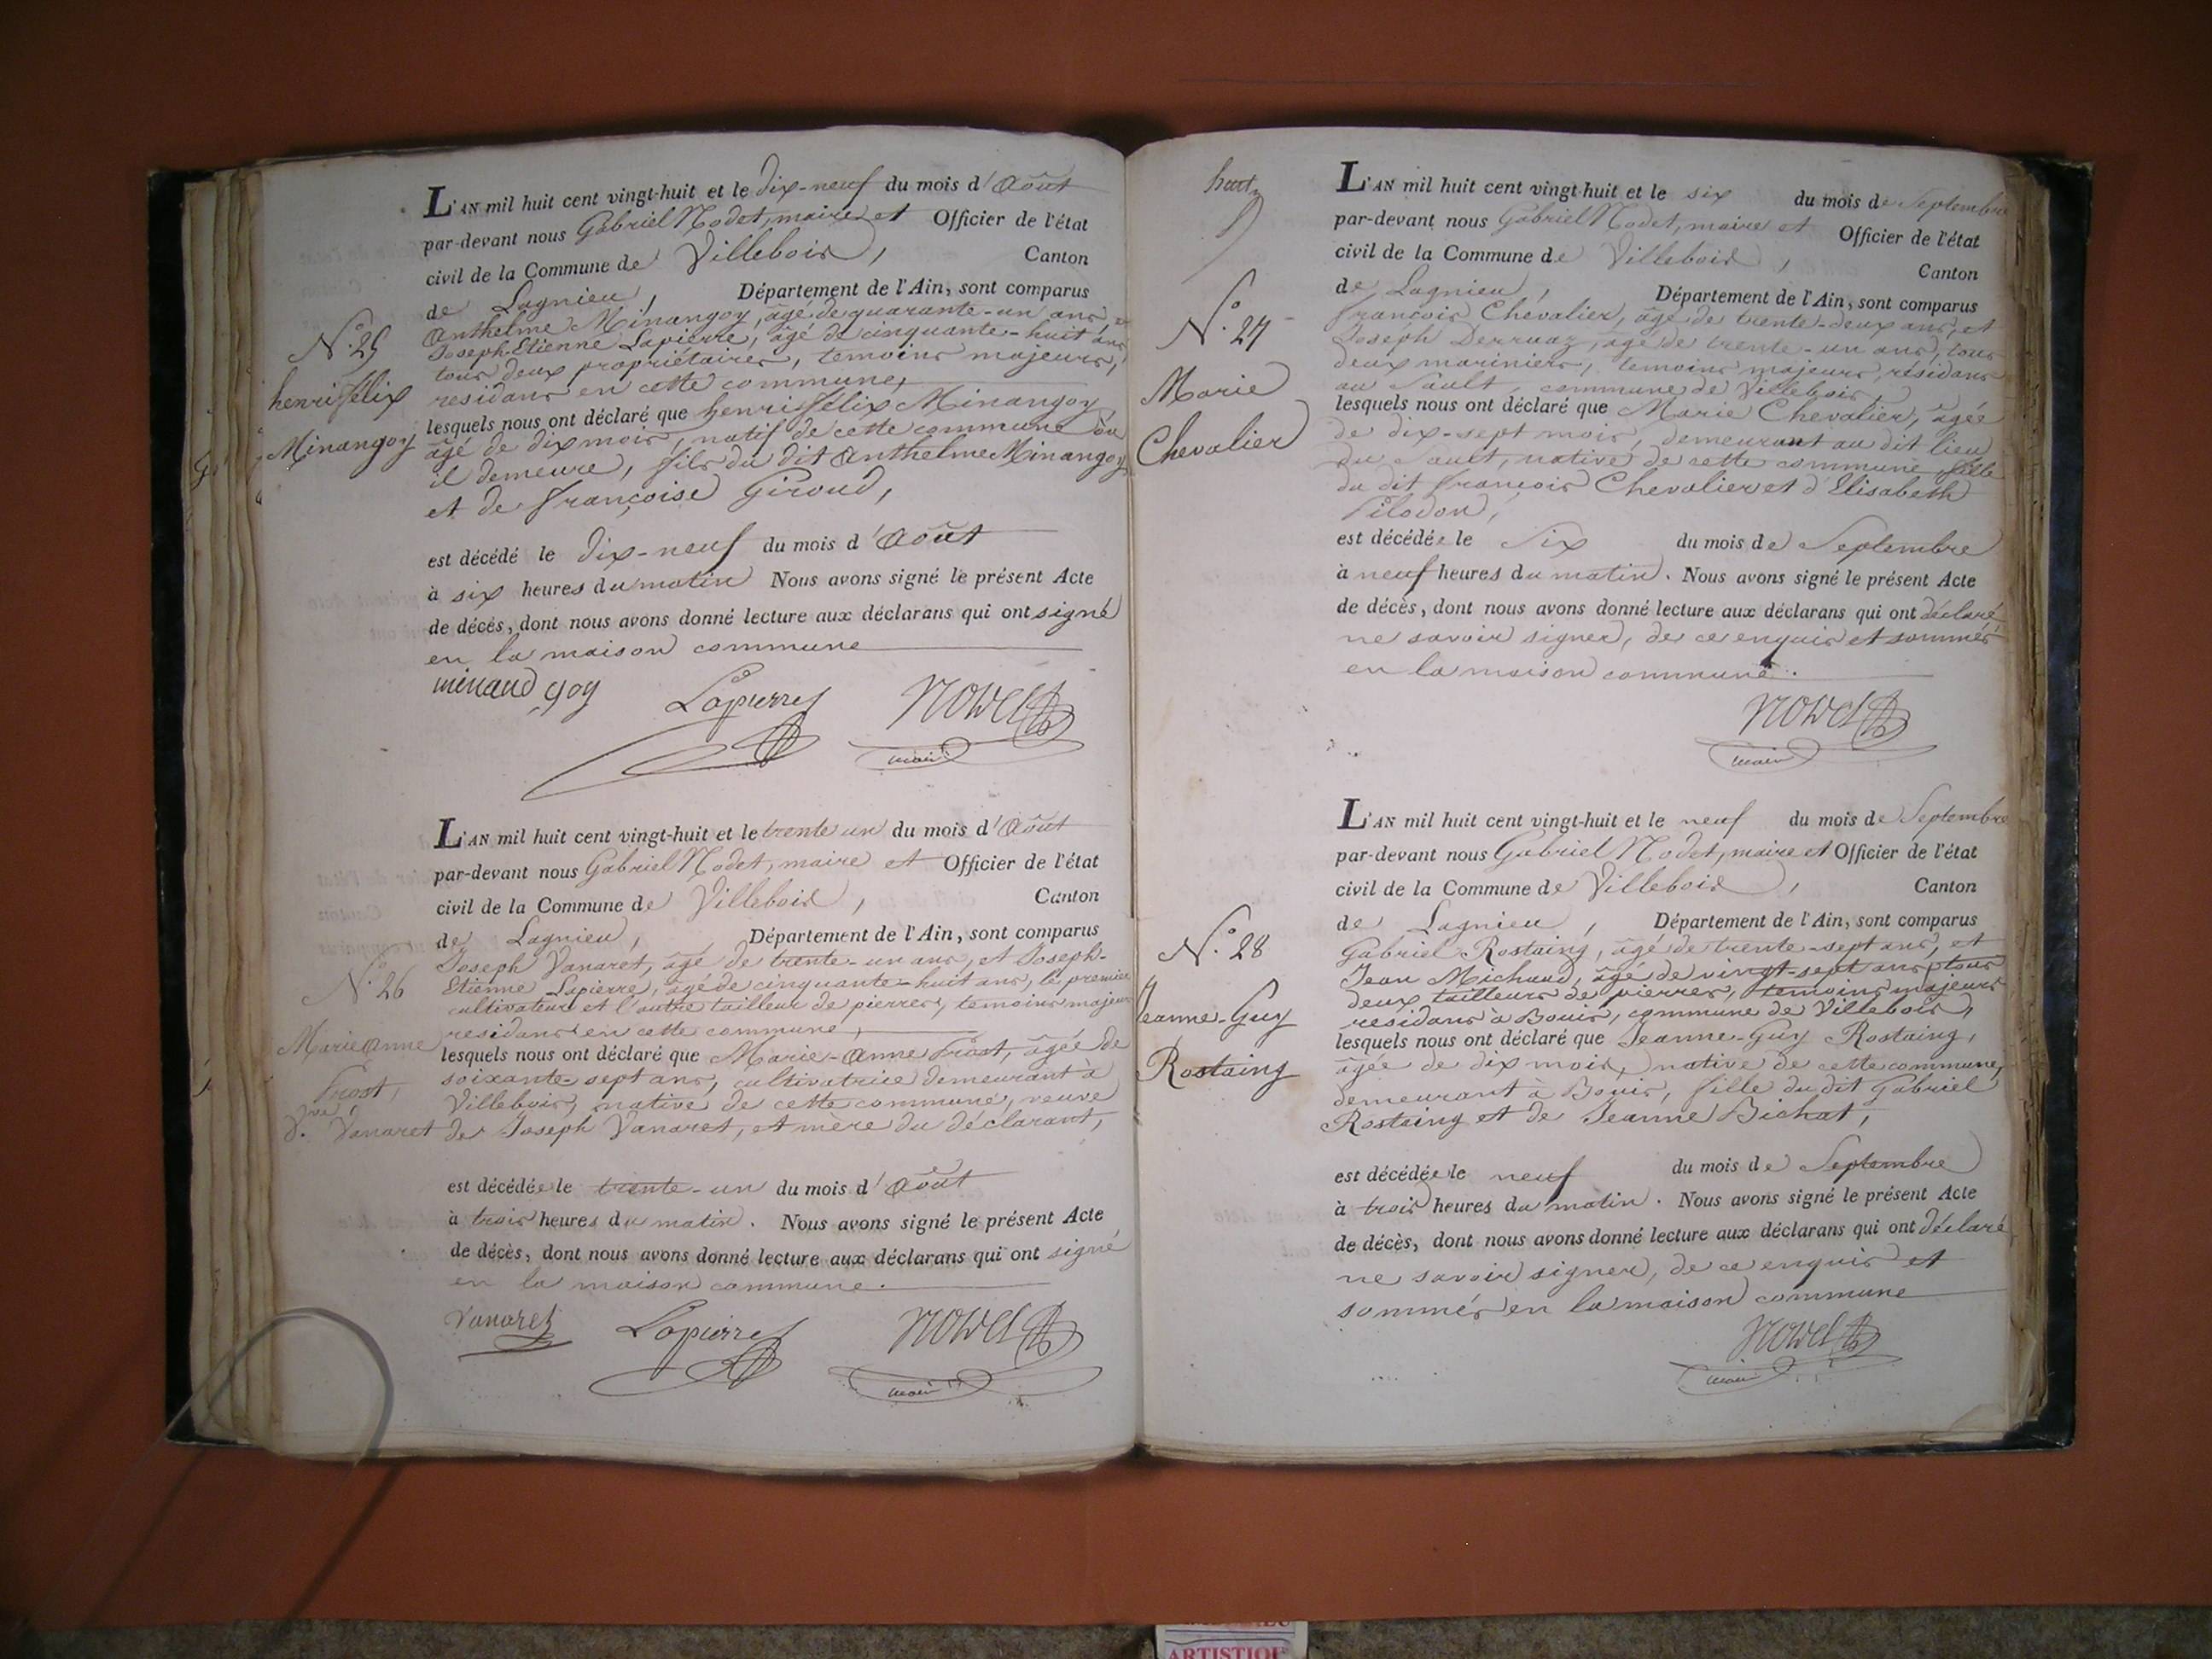 L'AN mil huit cent vingt-huit et le dix-neuf du mois d'Août
par-devant nous Gabriel Nodet, maire et Officier de l'état
civil de la Commune de Villebois, Canton
de Lagnieu, Département de l'Ain, sont comparus
Anthelme Minangoy, âgé de quarante-un ans, et
Joseph-Etienne Lapierre, âgé de cinquante-huit ans
tous deux propriétaires, temoins majeurs,
residans en cette commune,
lesquels nous ont déclaré que henri félix Minangoy
âgé de dix mois, natif de cette commune où
il demeure, fils du dit Anthelme Minangoy
et de françoise Giroud,
est décédé le dix-neuf du mois d'Août
à six heures du matin Nous avons signé le présent Acte
de décés, dont nous avons donné lecture aux déclarans qui ont signé
en la maison commune
minaud goy Lapierre Nodet
maire
N.o 25
henri félix
Minangoy
L'AN mil huit cent vingt-huit et le trente un du mois d'Août
par-devant nous Gabriel Nodet, maire et Officier de l'état
civil de la Commune de Villebois, Canton
de Lagnieu, Département de l'Ain, sont comparus
Joseph Vanaret, âgé de trente-un ans, et Joseph-
Etienne Lapierre, âgé de cinquante-huit ans, le premier
cultivateur et l'autre tailleur de pierres, temoins majeurs
residans en cette commune,
lesquels nous ont déclaré que Marie-Anne Trost, âgée de
soixante-sept ans, cultivatrice demeurant à
Villebois, native de cette commune, veuve
de Joseph Vanaret, et mère du déclarant,
est décédée le trente-un du mois d'Août
à trois heures du matin. Nous avons signé le présent Acte
de décès, dont nous avons donné lecture aux déclarans qui ont signé
en la maison commune.
Vanaret Lapierre Nodet
maire
N.o 26
Marie Anne
Trost,
Vve Vanaret
L'AN mil huit cent vingt-huit et le six du mois de Septembre
par-devant nous Gabriel Nodet, maire et Officier de l'état
civil de la Commune de Villebois, Canton
de Lagnieu, Département de l'Ain, sont comparus
françois Chevalier, âgé de trente-deux ans, et
Joseph Derruaz, âgé de trente-un ans, tous
deux mariniers, temoins majeurs, résidans
au Sault, commune de Villebois,
lesquels nous ont déclaré que Marie Chevalier, âgée
de dix-sept mois, demeurant au dit lieu
du Sault, native de cette commune, fille
du dit françois Chevalier et d'Elisabeth
Pilodon,
est décédée le Six du mois de Septembre
à neuf heures du matin. Nous avons signé le présent Acte
de décès, dont nous avons donné lecture aux déclarans qui ont déclaré
ne savoir signer, de ce enquis et sommés
en la maison commune.
Nodet
maire
N.o 27
Marie
Chevalier
L'AN mil huit cent vingt-huit et le neuf du mois de Septembre
par-devant nous Gabriel Nodet, maire et Officier de l'état
civil de la Commune de Villebois, Canton
de Lagnieu, Département de l'Ain, sont comparus
Gabriel Rostaing, âgé de trente-sept ans, et
Jean Michaud, âgé de vingt-sept ans, tous
deux tailleurs de pierres, temoins majeurs
residans à Bouis, commune de Villebois,
lesquels nous ont déclaré que Jeanne-Guy Rostaing,
âgée de dix mois, native de cette commune,
demeurant à Bouis, fille du dit Gabriel
Rostaing et de Jeanne Bichat,
est décédée le neuf du mois de Septembre
à trois heures du matin. Nous avons signé le présent Acte
de décès, dont nous avons donné lecture aux déclarans qui ont déclaré
ne savoir signer, de ce enquis et
sommés en la maison commune
Nodet
maire
N.o 28
Jeanne-Guy
Rostaing
ARTISTIQ